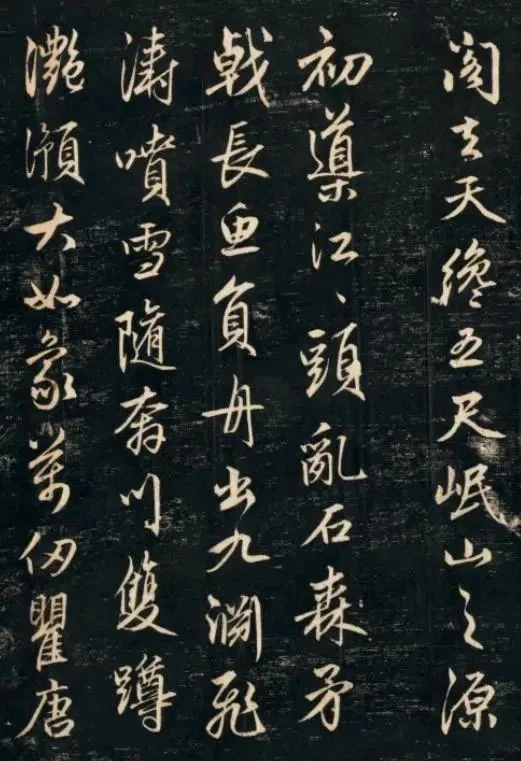 阁去天纔五尺岷山之源
初導江〻頭亂石森矛
戟長魚負舟出九淵飛
濤噴雪隨奔川雙蹲
灩澦大如象萬仞瞿唐